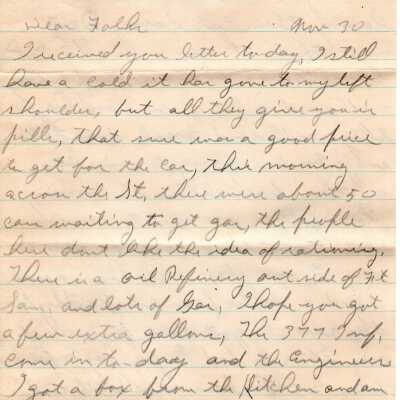 Dear Folks Nov 30
I received you letter to day, I still
have a cold it has gone to my left
shoulder, but all they give you is
pills, that sure was a good price
to get for the car, this morning
across the St, there were about 50
cars waiting to get gas, the people
here dont like the idea of rationing.
There is a oil Refinery out side of Ft
Sam, and lots of Gas, I hope you got
a few extra gallons, The 377 Inf,
come in to-day and the Engineers
I got a box from the Kitchen and am